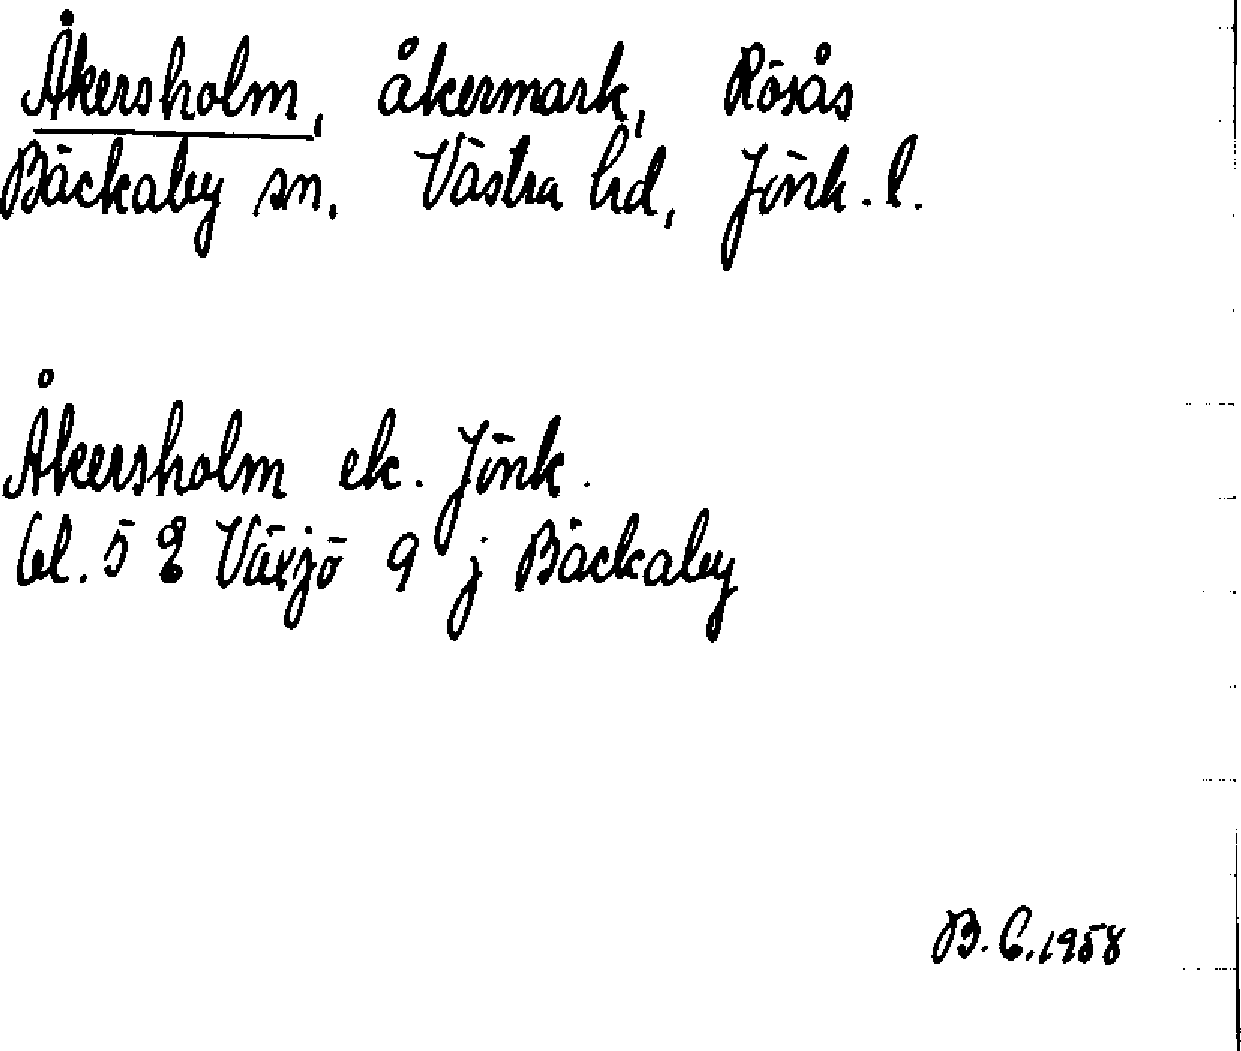 Åkersholm, åkermark, Rösås
Bäckaby sn. Västra hd, Jönk. l.
Åkersholm ek. Jönk.
bl. 5 E Växjö 9 j Bäckaby
B. C. 1958